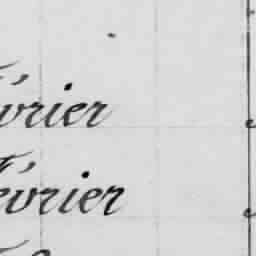 évrier
évrier